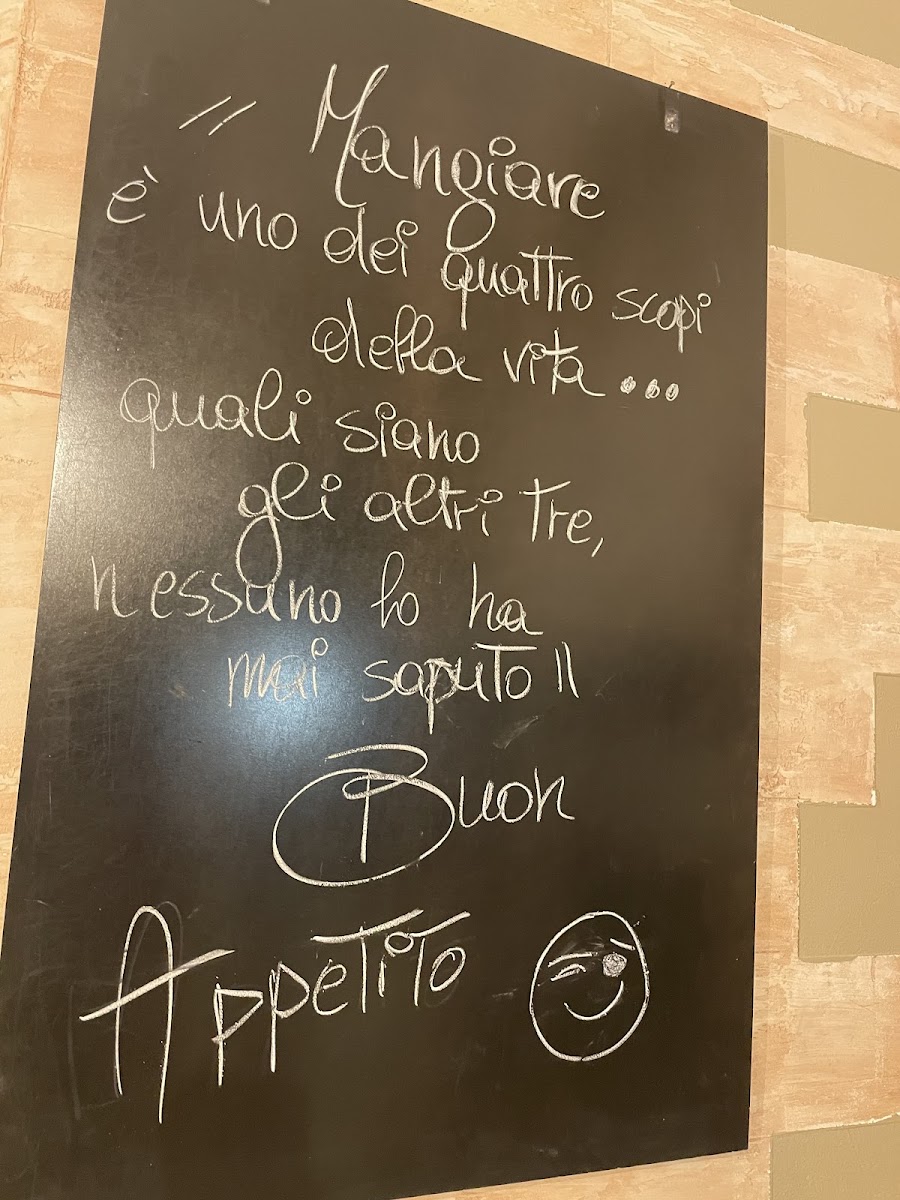 " Mangiare
è uno dei quattro scopi
della vita...
quali siano
gli altri tre,
nessuno lo ha
mai saputo "
Buon
Appetito